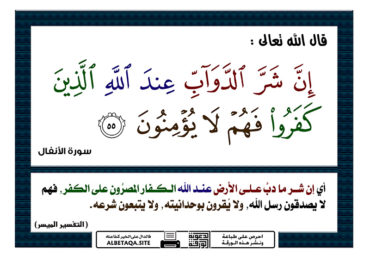 قال الله تعالى :
إِنَّ شَرَّ ٱلدَّوَآبِّ عِندَ ٱللَّهِ ٱلَّذِينَ
كَفَرُواْ فَهُمۡ لَا يُؤۡمِنُونَ ٥٥
سورة الأنفال
أي إن شـر ما دبَّ عـلـى الأرض عـنـد الله الـكـفـار المصرُّون على الكفر، فهم
لا يصدقون رسل الله، ولا يُقرون بوحدانيته، ولا يتبعون شرعه.
(التفسير الميسر)
احرص على طباعة
ونشر هذه الورقة
فالدال على الخير كفاعله
ALBETAQA.SITE